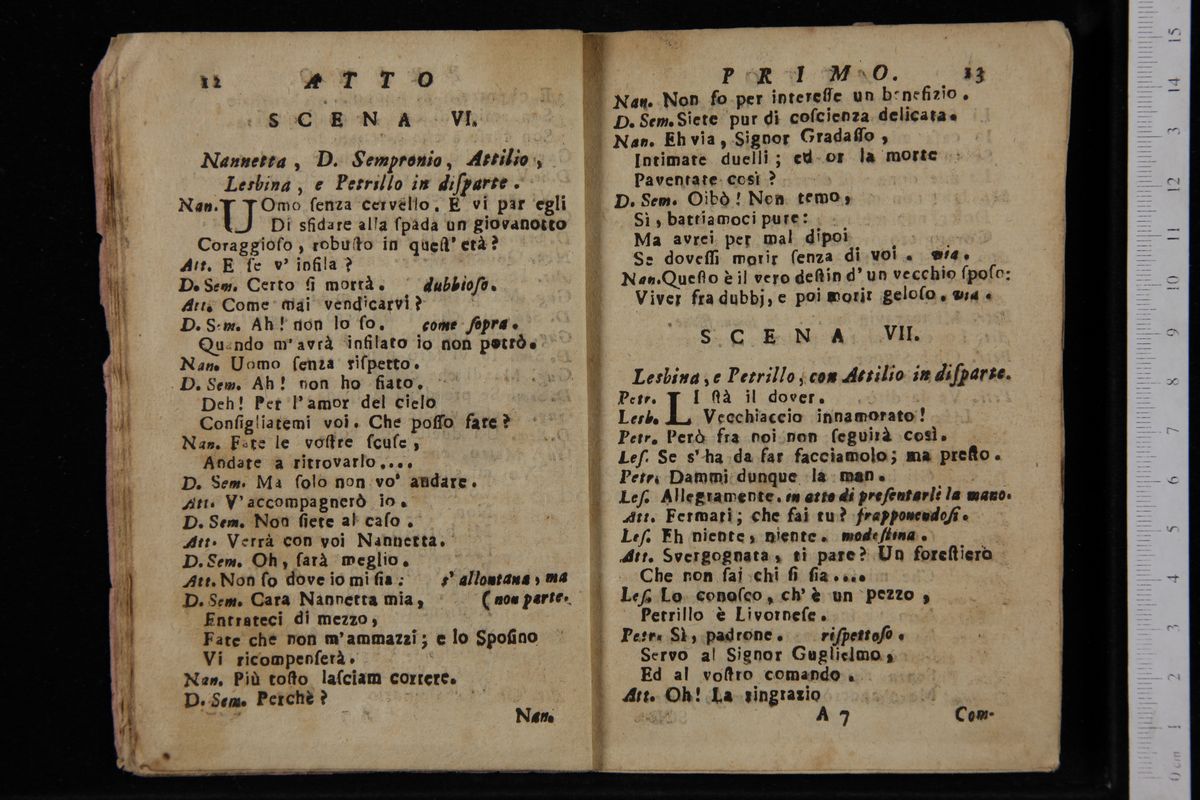 12 ATTO
SCENA VI.
Nannetta, D. Sempronio, Attilio,
Lesbina, e Petrillo in diſparte.
Nan. UOmo ſenza cervello. E vi par egli
Di sfidare alla ſpada un giovanotto
Coraggioſo, robuſto in queſt' età?
Att. E ſe v' infila?
D. Sem. Certo ſi morrà. dubbioſo.
Att. Come mai vendicarvi?
D. Sem. Ah! non lo ſo. come ſopra.
Quando m' avrà infilato io non potrò.
Nan. Uomo ſenza riſpetto.
D. Sem. Ah! non ho fiato.
Deh! Per l'amor del cielo
Conſigliatemi voi. Che poſſo fare?
Nan. Fate le voſtre ſcuſe,
Andate a ritrovarlo....
D. Sem. Ma ſolo non vo' andare.
Att. V' accompagnerò io.
D. Sem. Non ſiete al caſo.
Att. Verrà con voi Nannetta.
D. Sem. Oh, ſarà meglio.
Att. Non ſo dove io mi ſia: s' allontana, ma
D. Sem. Cara Nannetta mia, (non parte.
Entrateci di mezzo,
Fate che non m'ammazzi; e lo Spoſino
Vi ricompenſerà.
Nan. Più toſto laſciam correre.
D. Sem. Perchè?
Nan.
PRIMO. 13
Nan. Non fo per intereſſe un benefizio.
D. Sem. Siete pur di coſcienza delicata.
Nan. Eh via, Signor Gradaſſo,
Intimate duelli; ed or la morte
Paventate così?
D. Sem. Oibò! Non temo,
Sì, battiamoci pure:
Ma avrei per mal dipoi
Se doveſſi morir ſenza di voi. via.
Nan. Queſto è il vero deſtin d' un vecchio ſpoſo:
Viver fra dubbj, e poi morir geloſo. via.
SCENA VII.
Lesbina, e Petrillo, con Attilio in diſparte.
Petr. LI ſtà il dover.
Lesb. Vecchiaccio innamorato!
Petr. Però fra noi non ſeguirà così.
Leſ. Se s'ha da far facciamolo; ma preſto.
Petr. Dammi dunque la man.
Leſ. Allegramente. in atto di preſentarli la mano.
Att. Fermati; che fai tu? frapponendoſi.
Leſ. Eh niente, niente. modeſtina.
Att. Svergognata, ti pare? Un foreſtiero
Che non ſai chi ſi ſia....
Leſ. Lo conoſco, ch' è un pezzo,
Petrillo è Livorneſe.
Petr. Sì, padrone. riſpettoſo.
Servo al Signor Guglielmo,
Ed al voſtro comando.
Att. Oh! La ringrazio
A 7 Com-
0 cm 1 2 3 4 5 6 7 8 9 10 11 12 13 14 15